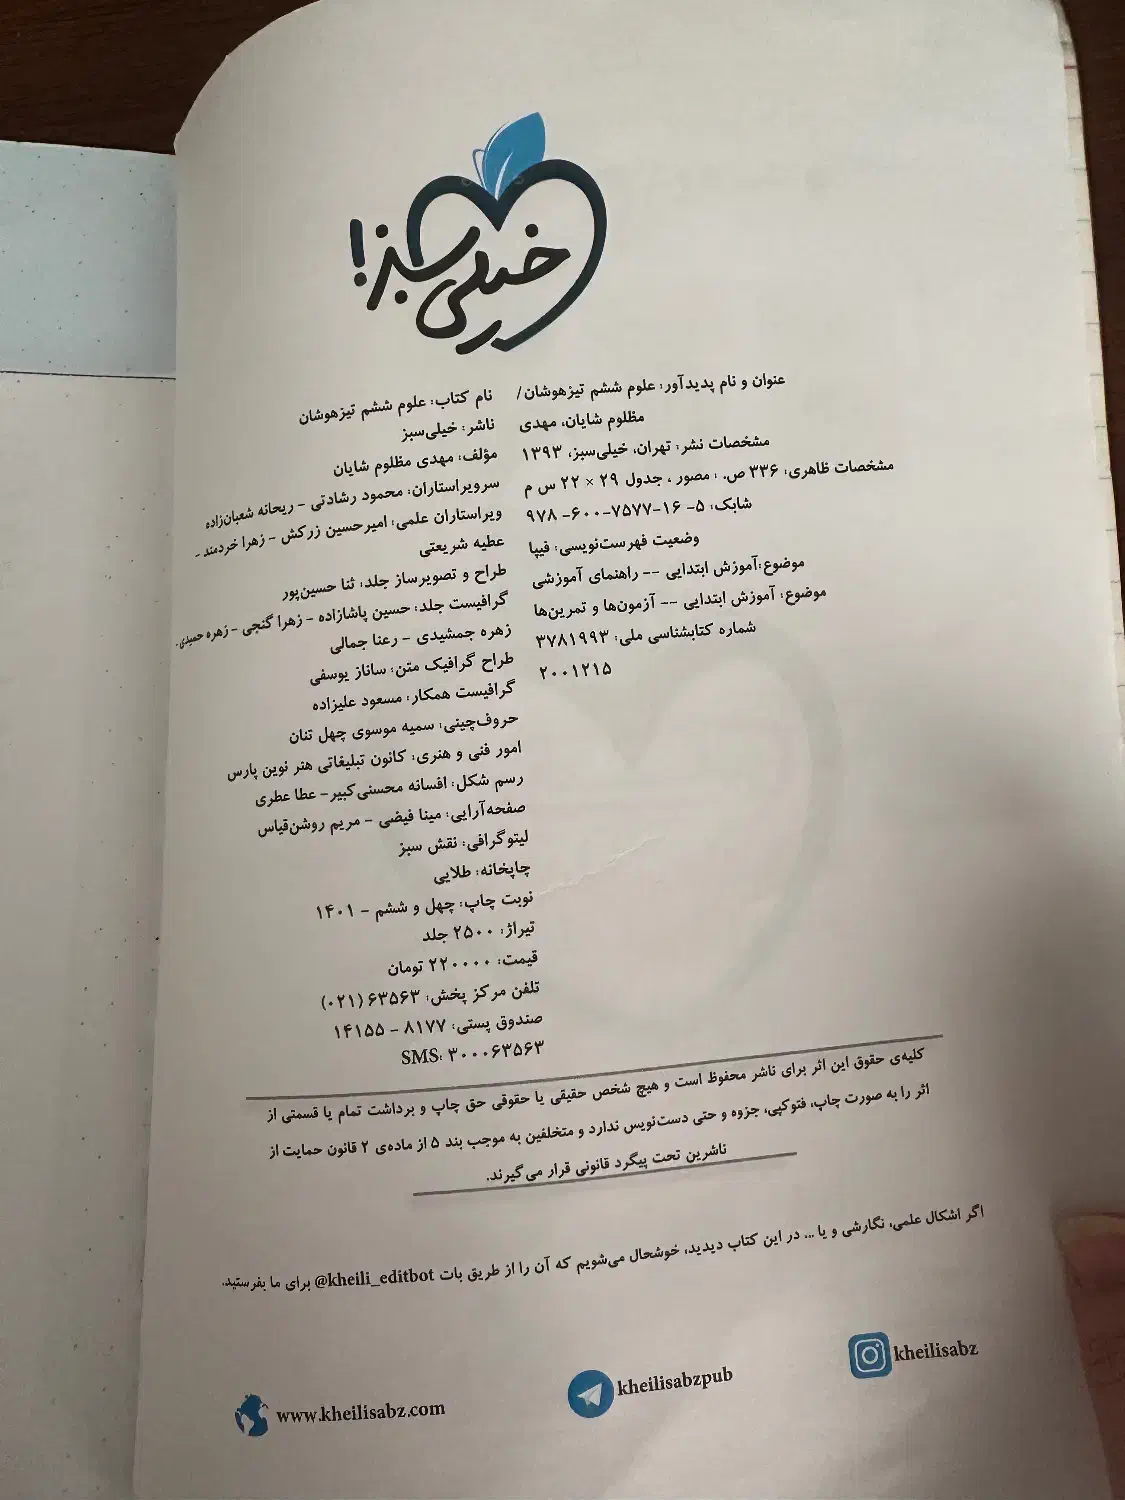 خیلی سبز!
عنوان و نام پدیدآور: علوم ششم تیزهوشان/
مظلوم شایان، مهدی
مشخصات نشر: تهران، خیلی‌سبز، ۱۳۹۳
مشخصات ظاهری: ۳۳۶ ص. : مصور ، جدول ۲۹ × ۲۲ س م
شابک: ۵- ۱۶-۷۵۷۷-۶۰۰- ۹۷۸
وضعیت فهرست‌نویسی: فیپا
موضوع:آموزش ابتدایی -- راهنمای آموزشی
موضوع: آموزش ابتدایی -- آزمون‌ها و تمرین‌ها
شماره کتابشناسی ملی: ۳۷۸۱۹۹۳
۲۰۰۱۲۱۵
نام کتاب: علوم ششم تیزهوشان
ناشر: خیلی‌سبز
مؤلف: مهدی مظلوم شایان
سرویراستاران: محمود رشادتی - ریحانه شعبان‌زاده
ویراستاران علمی: امیرحسین زرکش - زهرا خردمند -
عطیه شریعتی
طراح و تصویرساز جلد: ثنا حسین‌پور
گرافیست جلد: حسین پاشازاده - زهرا گنجی - زهره حمیدی-
زهره جمشیدی - رعنا جمالی
طراح گرافیک متن: ساناز یوسفی
گرافیست همکار: مسعود علیزاده
حروف‌چینی: سمیه موسوی چهل تنان
امور فنی و هنری: کانون تبلیغاتی هنر نوین پارس
رسم شکل: افسانه محسنی‌کبیر- عطا عطری
صفحه‌آرایی: مینا فیضی - مریم روشن‌قیاس
لیتوگرافی: نقش سبز
چاپخانه: طلایی
نوبت چاپ: چهل و ششم - ۱۴۰۱
تیراژ: ۲۵۰۰ جلد
قیمت: ۲۲۰۰۰۰ تومان
تلفن مرکز پخش: ۶۳۵۶۳ (۰۲۱)
صندوق پستی: ۸۱۷۷ - ۱۴۱۵۵
SMS: ۳۰۰۰۶۳۵۶۳
کلیه‌ی حقوق این اثر برای ناشر محفوظ است و هیچ شخص حقیقی یا حقوقی حق چاپ و برداشت تمام یا قسمتی از
اثر را به صورت چاپ، فتوکپی، جزوه و حتی دست‌نویس ندارد و متخلفین به موجب بند ۵ از ماده‌ی ۲ قانون حمایت از
ناشرین تحت پیگرد قانونی قرار می‌گیرند.
اگر اشکال علمی، نگارشی و یا ... در این کتاب دیدید، خوشحال می‌شویم که آن را از طریق بات @kheili_editbot برای ما بفرستید.
kheilisabz
kheilisabzpub
www.kheilisabz.com